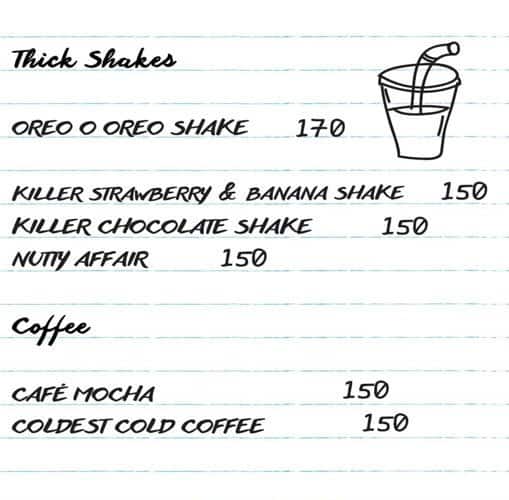 Thick Shakes
OREO O OREO SHAKE 170
KILLER STRAWBERRY & BANANA SHAKE 150
KILLER CHOCOLATE SHAKE 150
NUTTY AFFAIR 150
Coffee
CAFÉ MOCHA 150
COLDEST COLD COFFEE 150